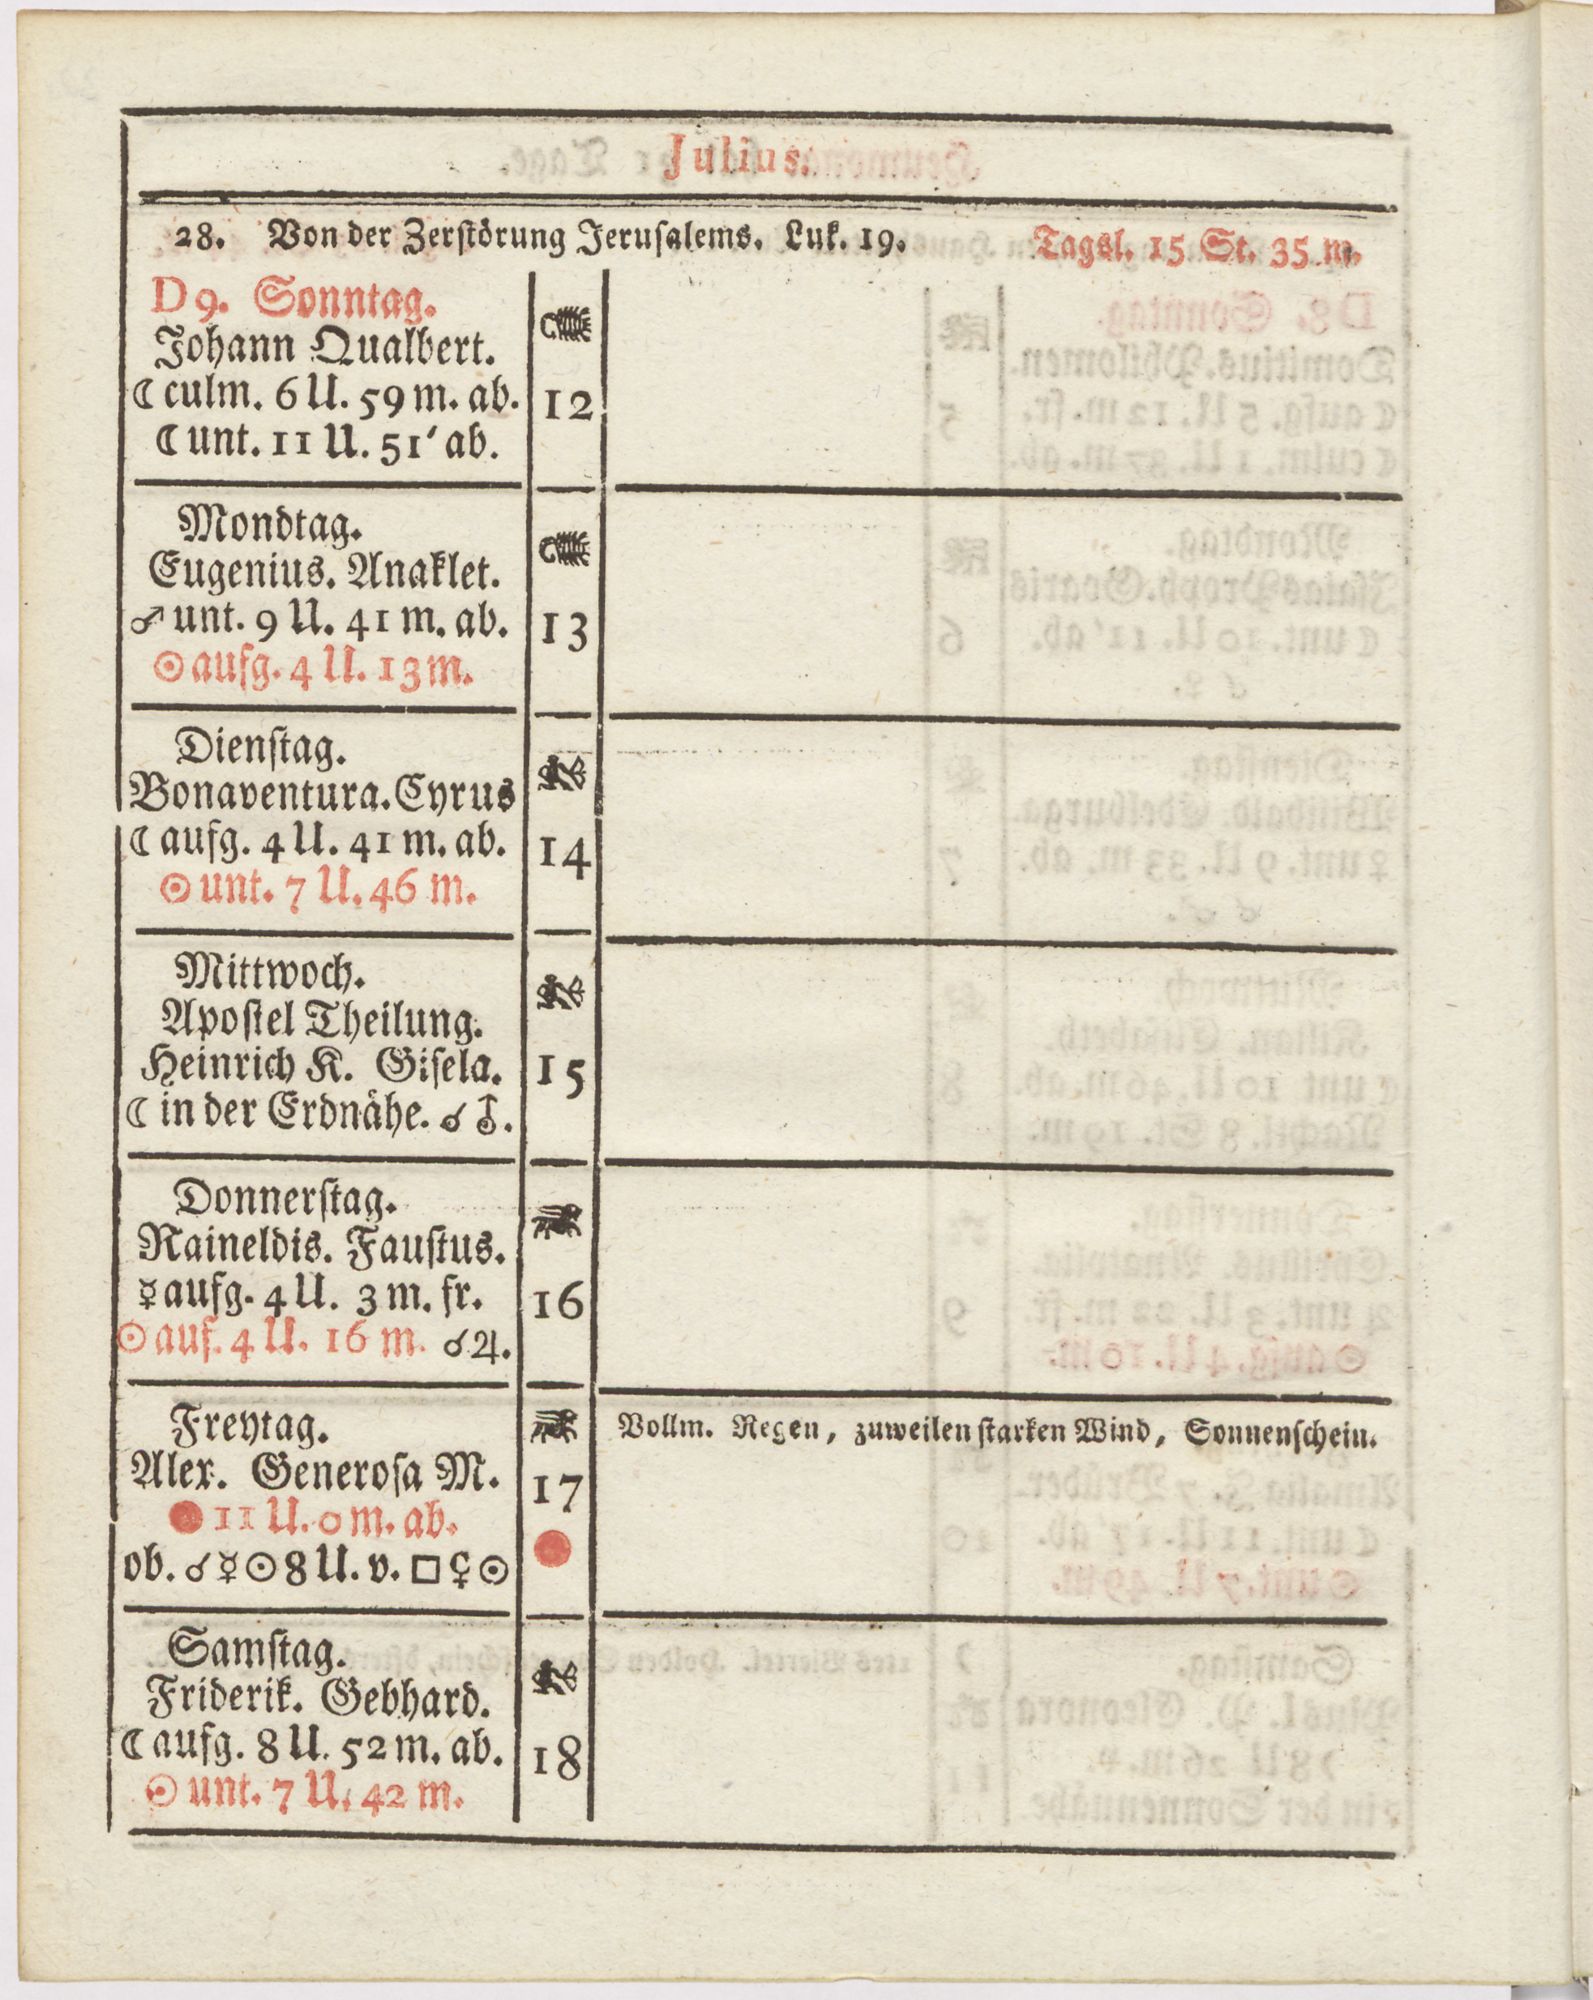 Julius.
28. Von der Zerstörung Jerusalems. Luk. 19. Tagsl. 15 St. 35 m.
D 9. Sonntag.
Johann Qualbert.
☾ culm. 6 U. 59 m. ab. 12
☾ unt. 11 U. 51′ ab.
Mondtag.
Eugenius. Anaklet.
♂ unt. 9 U. 41 m. ab. 13
☉ aufg. 4 U. 13 m.
Dienſtag.
Bonaventura. Cyrus
☾ aufg. 4 U. 41 m. ab. 14
☉ unt. 7 U. 46 m.
Mittwoch.
Apoſtel Theilung.
Heinrich K. Giſela. 15
☾ in der Erdnähe. ☌ ⛢.
Donnerſtag.
Raineldis. Fauſtus.
☿ aufg. 4 U. 3 m. fr. 16
☉ auf. 4 U. 16 m. ☌ ♃.
Freytag. Vollm. Regen, zuweilen ſtarken Wind, Sonnenſchein.
Alex. Generoſa M. 17
● 11 U. 0 m. ab.
ob. ☌ ☿ ☉ 8 U. v. □ ♀ ☉
Samſtag.
Friderik. Gebhard.
☾ aufg. 8 U. 52 m. ab. 18
☉ unt. 7 U. 42 m.